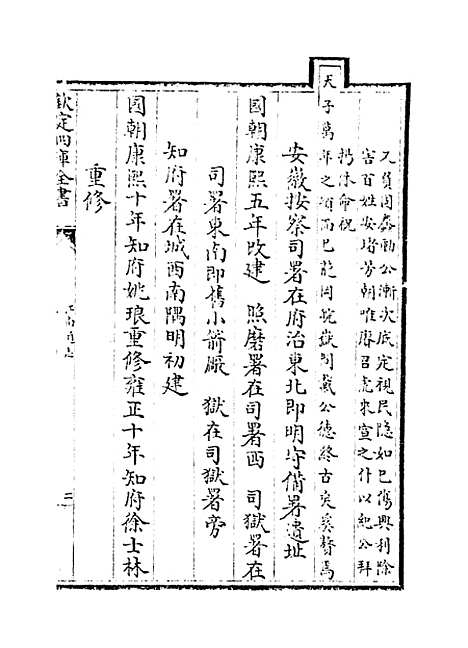 又貧因蠢動公漸次底定視民隐如已傷興利除
害百姓安堵芳朝唯賡召虎来宣之什以紀公拜
揚休命祝
天子萬年之頌而已茲岡皖嶽詞戴公德終古矣奚贅焉
安徽按察司署在府治東北即明守備署遺址
國朝康熙五年改建 照磨署在司署西 司獄署在
司署東南即舊小箭厰 獄在司獄署旁
知府署在城西南隅明初建
國朝康熙十年知府姚琅重修雍正十年知府徐士林
重修
欽定四庫全書
江南通志